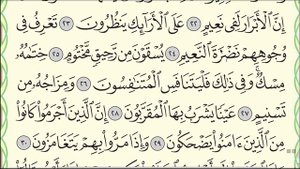 إِنَّ ٱلْأَبْرَارَ لَفِى نَعِيمٍ ٢٢ عَلَى ٱلْأَرَآئِكِ يَنظُرُونَ ٢٣ تَعْرِفُ فِى
وُجُوهِهِمْ نَضْرَةَ ٱلنَّعِيمِ ٢٤ يُسْقَوْنَ مِن رَّحِيقٍ مَّخْتُومٍ ٢٥ خِتَٰمُهُۥ
مِسْكٌ ۚ وَفِى ذَٰلِكَ فَلْيَتَنَافَسِ ٱلْمُتَنَٰفِسُونَ ٢٦ وَمِزَاجُهُۥ مِن
تَسْنِيمٍ ٢٧ عَيْنًا يَشْرَبُ بِهَا ٱلْمُقَرَّبُونَ ٢٨ إِنَّ ٱلَّذِينَ أَجْرَمُوا۟ كَانُوا۟
مِنَ ٱلَّذِينَ ءَامَنُوا۟ يَضْحَكُونَ ٢٩ وَإِذَا مَرُّوا۟ بِهِمْ يَتَغَامَزُونَ ٣٠